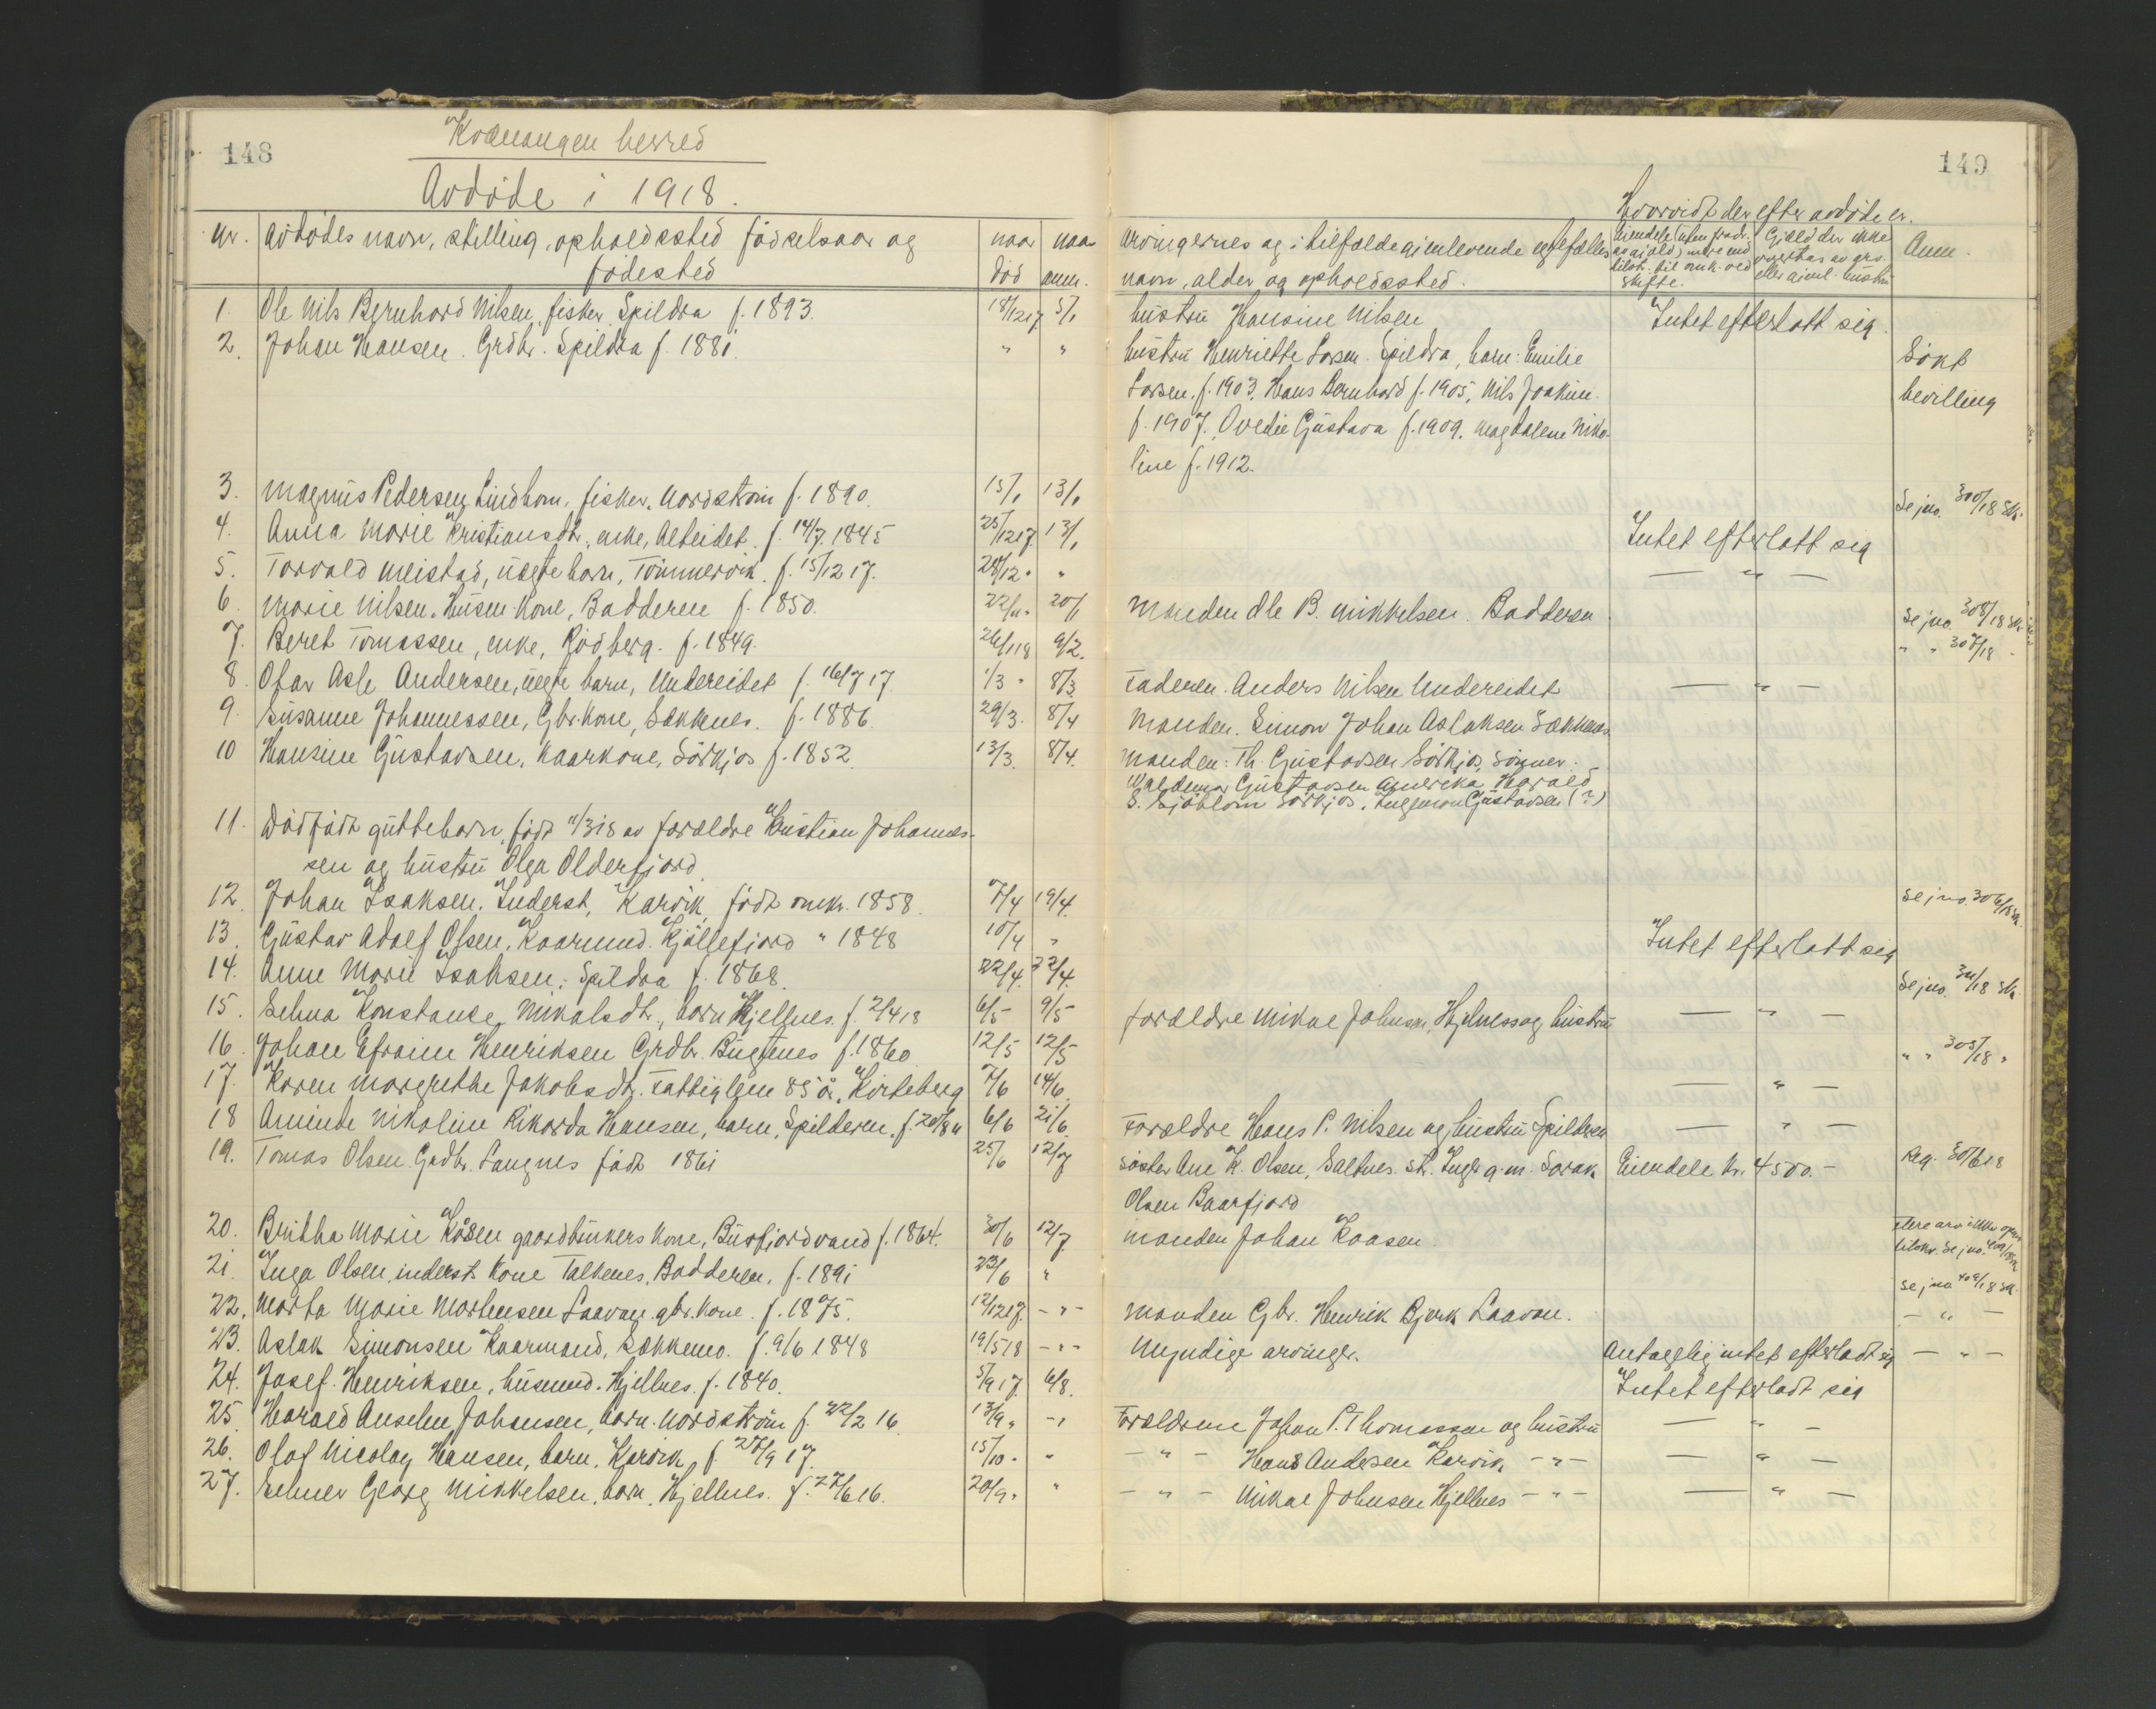 148
Kvænangen herred
Avdöde i 1918.
nr. Avdödes navn, stilling, opholdssted födselsaar og
födested
naar död
naar anm.
1. Ole Nils Bernhard Nilsen, fisker, Spildra f. 1893. 18/12 17 5/1
2. Johan Hansen. Grdbr. Spildra f. 1881. " "
3. Magnus Pedersen Lindbom, fisker, Nordström f. 1890. 15/1 13/1
4. Anna Marie Kristiansdtr., enke, Alteidet. f. 14/7 1845 25/12 17. 13/1
5. Torvald Meistad, uægte barn, Tömmervik. f. 15/12 17. 28/12 " "
6. Marie Nilsen. Husm. kone, Badderen f. 1850. 22/11 " 20/1
7. Beret Tomassen, enke, Rödberg. f. 1849. 26/1 18 9/2.
8. Olav Asle Andersen, uegte barn, Undereidet f. 16/7 17. 1/3 " 8/3
9. Susanne Johannessen, Gbr. kone, Sækkenes. f. 1886. 29/3. 8/4
10 Hansine Gustavsen, Kaarkone, Sörkjos f. 1852. 13/3. 8/4.
11. Dödfödt guttebarn, födt 11/3 18 av forældre Kristian Johannes-
sen og hustru Olga Olderfjord.
12. Johan Isaksen. Inderst, Karvik, födt omkr. 1858. 7/4 19/4.
13. Gustav Adolf Olsen, Kaarmnd. Kjöllefjord " 1848 10/4 "
14. Anne Marie Isaksen. Spildra f. 1868. 22/4. 22/4.
15. Selma Konstanse Mikalsdtr., barn Hjellnes. f. 2/4 18 6/5 9/5
16. Johan Efraim Henriksen Grdbr. Bugtenes f. 1860. 12/5 12/5
17. Karen Margrethe Jakobsdtr. Fattiglem 85 år, Kirteberg 7/6 14/6.
18 Aminde Nikoline Rikarda Hansen, barn, Spilderen. f. 20/8 6/6 21/6.
19. Tomas Olsen Grdbr. Langnes födt 1861 25/6 12/7
20. Britha Marie Kåsen gaardbrukers kone, Burfjordvand f. 1864. 30/6 12/7
21. Inga Olsen, inderst kone Talbenes, Badderen. f. 1891 23/6 "
22. Marta Marie Mortensen Laavan. gbr. kone. f. 1875. 12/12 17. - " -
23. Aslak Simonsen Kaarmand, Sækkemo. f. 9/6 1848 19/5 18 - " -
24. Josef Henriksen, husmnd. Hjellnes. f. 1840. 5/9 17. 6/8.
25. Harald Anselm Johansen, barn. Nordström f. 22/2 16. 13/9 " - "
26. Olaf Nicolay Hansen, barn. Karvik. f. 27/9 17. 15/10 " "
27. Selmer Georg Mikkelsen, barn, Hjellnes. f. 27/6 16. 20/9. "
149
Hvorvidt der efter avdöde er.
Arvingernes og i tilfælde gjenlevende egtefælles
navn, alder og opholdssted.
Eiendele (uten fradr.
av gjæld) mere end
tilstr. til omk. ved
skifte.
Gjæld der ikke
overtas av arv.
eller gjenl. hustru
Anm.
hustru Hansine Nilsen Intet efterlatt sig.
hustru Henriette Larsen. Spildra, barn: Emilie Sökt
Larsen, f. 1903, Hans Bernhard f. 1905, Nils Joakim. bevilling
f. 1907. Ovedie Gustava f. 1909. Magdalene Niko-
line f. 1912.
Se jno. 300/18 Sk.
Intet efterlatt sig
— " —
Manden Ole B. Mikkelsen. Badderen. Se jno. 308/18 Sk.
" " 307/18 "
Faderen. Anders Nilsen Undereidet — " —
Manden. Simon Johan Aslaksen Sækkenes
Manden: Th. Gustavsen Sörkjos, sönner.
Waldemar Gustavsen Amerika, Harald
S. Sjöblom Sörkjos. Ingeman Gustavsen (?)
Se jno. 306/18 Sk.
Intet efterlatt sig
Se jno. 311/18 Sk.
Forældre Mikal Johnsen, Hjelnes og hustru — " —
" " 305/18 "
— " —
Forældre Hans P. Nilsen og hustru Spilderen — " —
Söster Ane K. Olsen, Saltnes. st. Ingb. g. m. Sarak Eiendele kr. 4500.- Reg. 30/6 18
Olsen Baarfjord
manden Johan Kaasen.
Se jno. 408/18 Sk.
Manden Gbr. Henrik Bjerk Laavan. — " —
Myndige arvinger. Antagelig intet efterladt sig — " —
Intet efterladt sig
Forældrene Johan P. Thomassen og hustru — " —
— " — Hans Andersen Karvik — " — — " —
— " — Mikal Johnsen Hjellnes — " — — " —